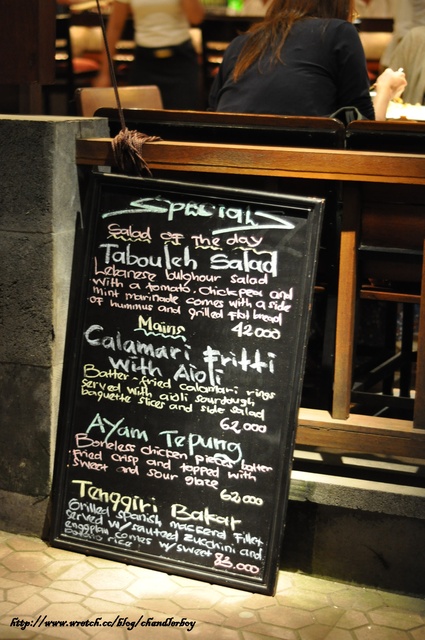 Specials
Salad of the day
Tabouleh Salad
Lebanese bulghour salad
with a tomato, chickpea and
mint marinade comes with a side
of hummus and grilled flat bread
42000
Mains
Calamari Fritti
with Aioli
Batter-fried calamari rings
served with aioli sourdough
baguette slices and side salad
62,000
Ayam Tepung
Boneless chicken pieces batter
fried crisp and topped with
sweet and sour glaze
62,000
Tenggiri Bakar
Grilled spanish mackerel fillet
served w/ sauteed zucchini and
eggplant comes w/ sweet
potato rice
83.000
http://www.wretch.cc/blog/chandlerboy